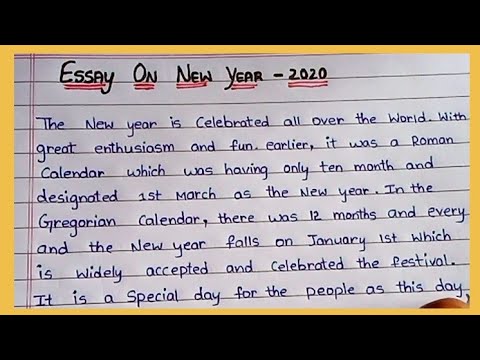 Essay On New Year - 2020
The New year is Celebrated all over the World. With
great enthusiasm and fun. earlier, it was a Roman
Calendar which was having only ten month and
designated 1st March as the New year. In the
Gregorian Calendar, there was 12 months and every
and the New year falls on January 1st which
is widely accepted and Celebrated the festival.
It is a Special day for the people as this day